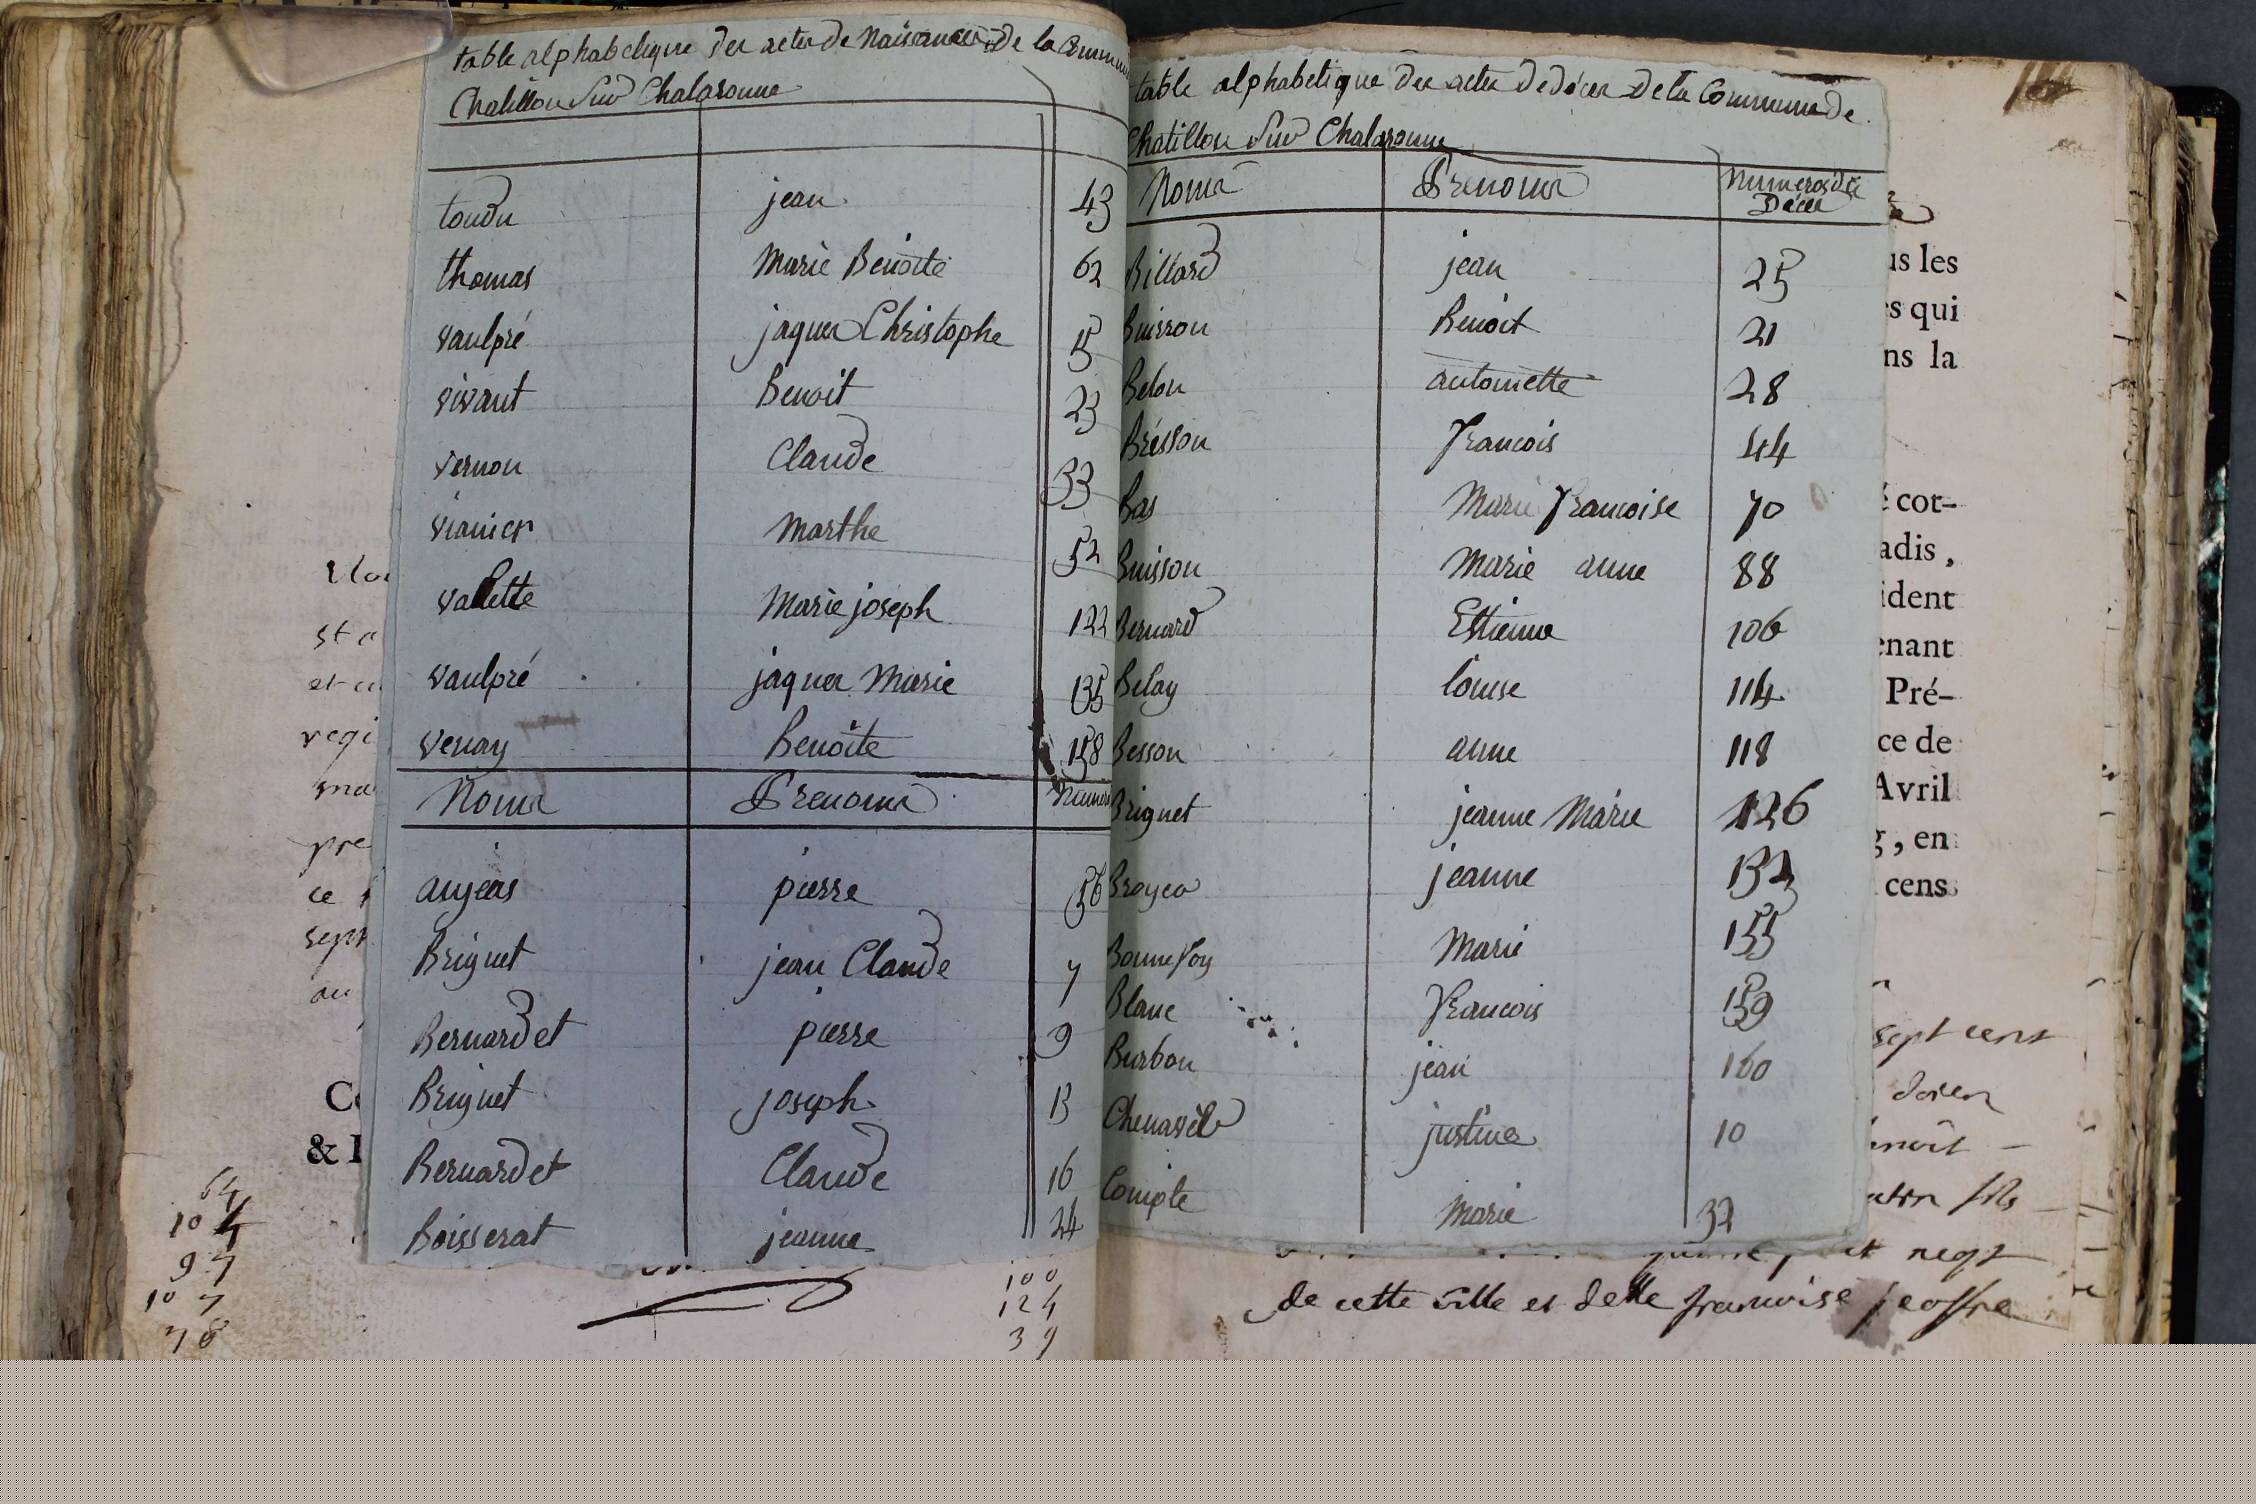 table alphabetique des actes de Naissances de la Commun
Chatillon Sur Chalaronne
toudu jean 43
thomas Marie Benoite 62
vaulpré jaques Christophe 15
vivant Benoit 23
vernon Claude 33
vianier Marthe 52
vallette Marie joseph 122
vaulpré jaques Marie 135
venay Benoite 158
Noms Prenoms Numeros
anjeas pierre 56
Briguet jean Claude 7
Bernardet pierre 9
Briguet joseph 13
Bernardet Claude 16
Boisserat jeanne 24
table alphabetique des actes de déces de la Commune de
Chatillon Sur Chalaronne
Noms Prenoms Numeros des
Déces
Billard jean 25
Buisson Benoit 21
Belon antoinette 28
Bresson francois 44
Bas Marie francoise 70
Buisson Marie anne 88
Bernard Estienne 106
Belay louise 114
Besson anne 118
Briguet jeanne Marie 126
Broyer jeanne 132
Bonnefoy Marie 155
Blanc francois 159
Burbon jean 160
Chenavel justine 10
Compte Marie 32
us les
es qui
ns la
é cot-
adis,
ident
enant
Pré-
ce de
Avril
g, en
cens
sept cent
de cette ville et delle francoise
st a
et
regi
ma
pre
ce
sept
au
& I
64
104
97
107
78
100
124
39